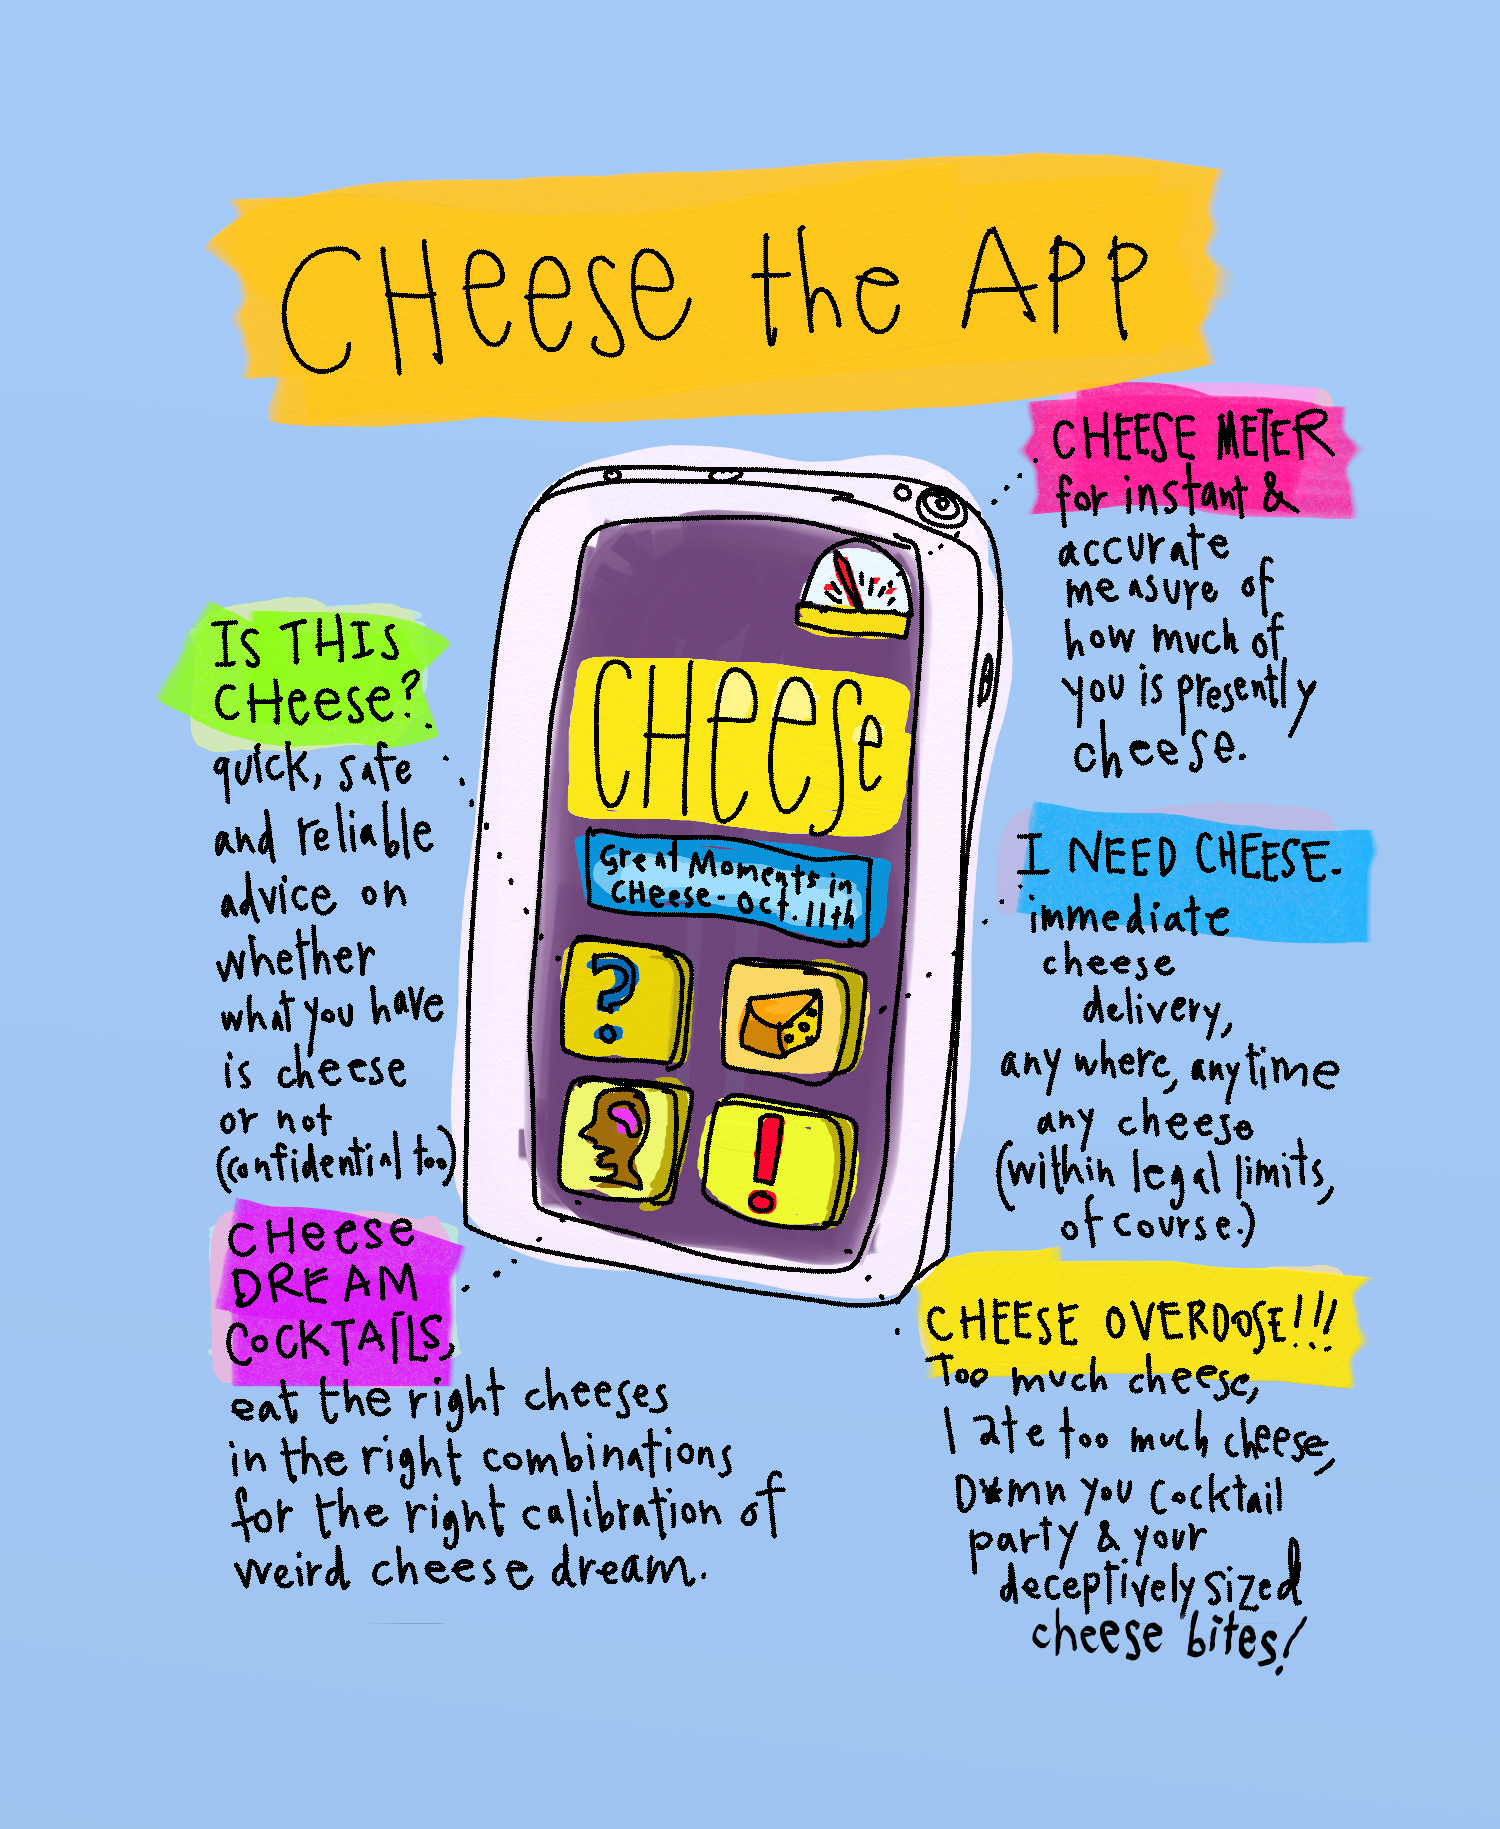 CHeese the APP
CHEESE METER
for instant &
accurate
measure of
how much of
you is presently
cheese.
IS THIS
CHeese?
quick, safe
and reliable
advice on
whether
what you have
is cheese
or not
(confidential too)
CHeese
Great Moments in
CHeese - Oct. 11th
?
!
I NEED CHEESE-
immediate
cheese
delivery,
any where, anytime
any cheese
(within legal limits,
of course.)
CHeese
DREAM
COCKTAILS,
eat the right cheeses
in the right combinations
for the right calibration of
weird cheese dream.
CHEESE OVERDOSE!!!
Too much cheese,
I ate too much cheese,
D*mn you Cocktail
party & your
deceptively sized
cheese bites!